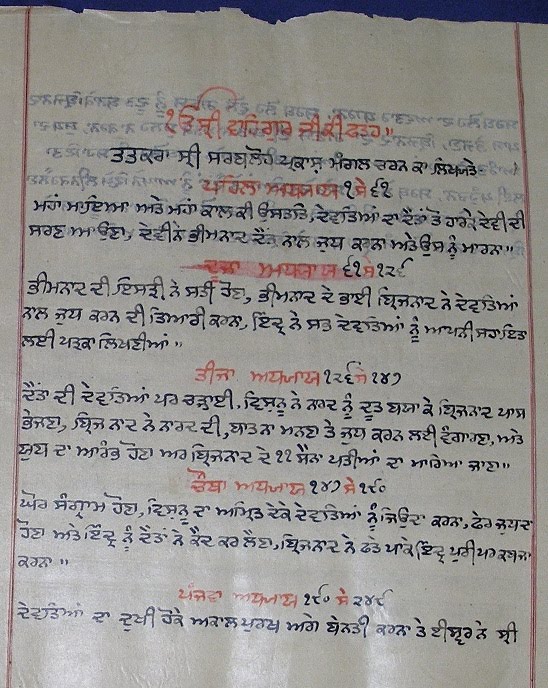 ੴ ਸ੍ਰੀ ਵਾਹਿਗੁਰੂ ਜੀ ਕੀ ਫਤਹ॥
ਤਤਕਰਾ ਸ੍ਰੀ ਸਰਬਲੋਹ ਪ੍ਰਕਾਸ਼ ਮੰਗਲਾਚਰਨ ਕਾ ਲਿਖਯਤੇ
ਪਹਿਲਾ ਅਧਯਾਯ ੧ ਸੇ ੬੧
ਮਹਾਂ ਮਾਇਆ ਅਤੇ ਮਹਾਂ ਕਾਲ ਕੀ ਉਸਤਤਿ, ਦੇਵਤਿਆਂ ਦਾ ਦੈਂਤਾਂ ਤੋਂ ਹਾਰਕੇ ਦੇਵੀ ਦੀ
ਸਰਣ ਆਉਣਾ, ਦੇਵੀ ਨੇ ਭੀਮਨਾਦ ਦੈਂਤ ਨਾਲ ਜੁਧ ਕਰਨਾ ਅਤੇ ਉਸ ਨੂੰ ਮਾਰਨਾ॥
ਦੂਜਾ ਅਧਯਾਯ ੬੧ ਸੇ ੧੨੬
ਭੀਮਨਾਦ ਦੀ ਇਸਤ੍ਰੀ ਨੇ ਸਤੀ ਹੋਣਾ, ਭੀਮਨਾਦ ਦੇ ਭਾਈ ਬ੍ਰਿਜਨਾਦ ਨੇ ਦੇਵਤਿਆਂ
ਨਾਲ ਜੁਧ ਕਰਨ ਦੀ ਤਿਆਰੀ ਕਰਨਾ, ਇੰਦ੍ਰ ਨੇ ਸਭ ਦੇਵਤਿਆਂ ਨੂੰ ਆਪਨੀ ਸਹਾਇਤਾ
ਲਈ ਪਤ੍ਰਕਾ ਲਿਖਣੀਆਂ॥
ਤੀਜਾ ਅਧਯਾਯ ੧੨੬ ਸੇ ੧੪੭
ਦੈਂਤਾਂ ਦੀ ਦੇਵਤਿਆਂ ਪਰ ਚੜ੍ਹਾਈ, ਵਿਸ਼ਨੂ ਨੇ ਨਾਰਦ ਨੂੰ ਦੂਤ ਬਣਾ ਕੇ ਬ੍ਰਿਜਨਾਦ ਪਾਸ
ਭੇਜਣਾ, ਬ੍ਰਿਜ ਨਾਦ ਨੇ ਨਾਰਦ ਦੀ, ਬਾਤ ਨਾ ਮਨਣਾ ਤੇ ਜੁਧ ਕਰਨ ਲਈ ਵੰਗਾਰਣਾ, ਅਤੇ
ਯੁਧ ਦਾ ਆਰੰਭ ਹੋਣਾ ਅਰ ਬ੍ਰਿਜਨਾਦ ਦੇ ੧੧ ਸੈਨਾ ਪਤੀਆਂ ਦਾ ਮਾਰਿਆ ਜਾਣਾ॥
ਚੌਥਾ ਅਧਯਾਯ ੧੪੭ ਸੇ ੧੬੦
ਘੋਰ ਸੰਗ੍ਰਾਮ ਹੋਣਾ, ਵਿਸ਼ਨੂ ਦਾ ਅੰਮ੍ਰਿਤ ਦੇਕੇ ਦੇਵਤਿਆਂ ਨੂੰ ਜਿਉਂਦਾ ਕਰਨਾ, ਫੇਰ ਜੁਧ ਦਾ
ਹੋਣਾ ਅਤੇ ਇੰਦ੍ਰ ਨੂੰ ਦੈਂਤਾਂ ਨੇ ਕੈਦ ਕਰ ਲੈਣਾ, ਬ੍ਰਿਜਨਾਦ ਨੇ ਫਤੇ ਪਾਕੇ ਇੰਦ੍ਰ ਪੁਰੀ ਪਰ ਕਬਜਾ
ਕਰਨਾ॥
ਪੰਜਵਾ ਅਧਯਾਯ ੧੬੦ ਸੇ ੨੪੬
ਦੇਵਤਿਆਂ ਦਾ ਦੁਖੀ ਹੋਕੇ ਅਕਾਲ ਪੁਰਖ ਅਗੇ ਬੇਨਤੀ ਕਰਨਾ ਤੇ ਈਸ਼੍ਵਰ ਨੇ ਸ੍ਰੀ